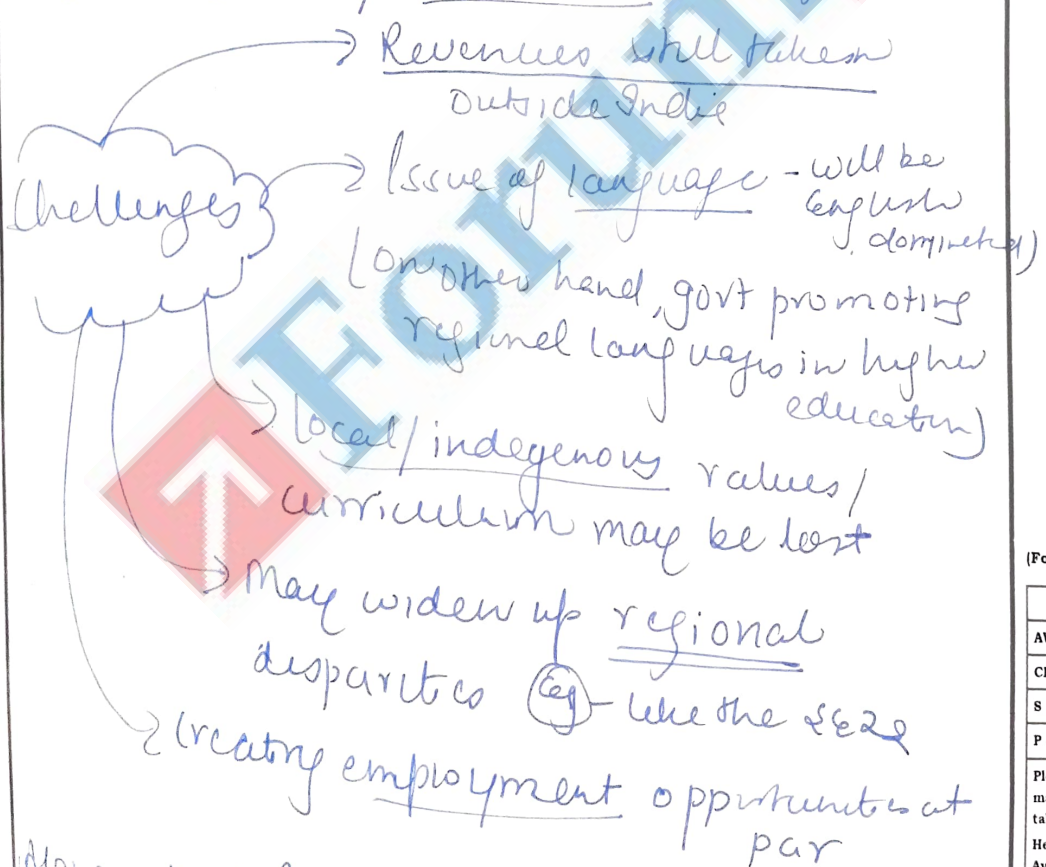 Revenues still taken
outside India
Challenges
Issue of language - will be
English
dominated)
(On other hand, govt promoting
regional languages in higher
education)
local/indegenous values/
curriculum may be lost
May widen up regional
disparities Eg - like the SEZs
Creating employment opportunities at
par
Forum
(Fo
S
P
Pl
ma
tal
He